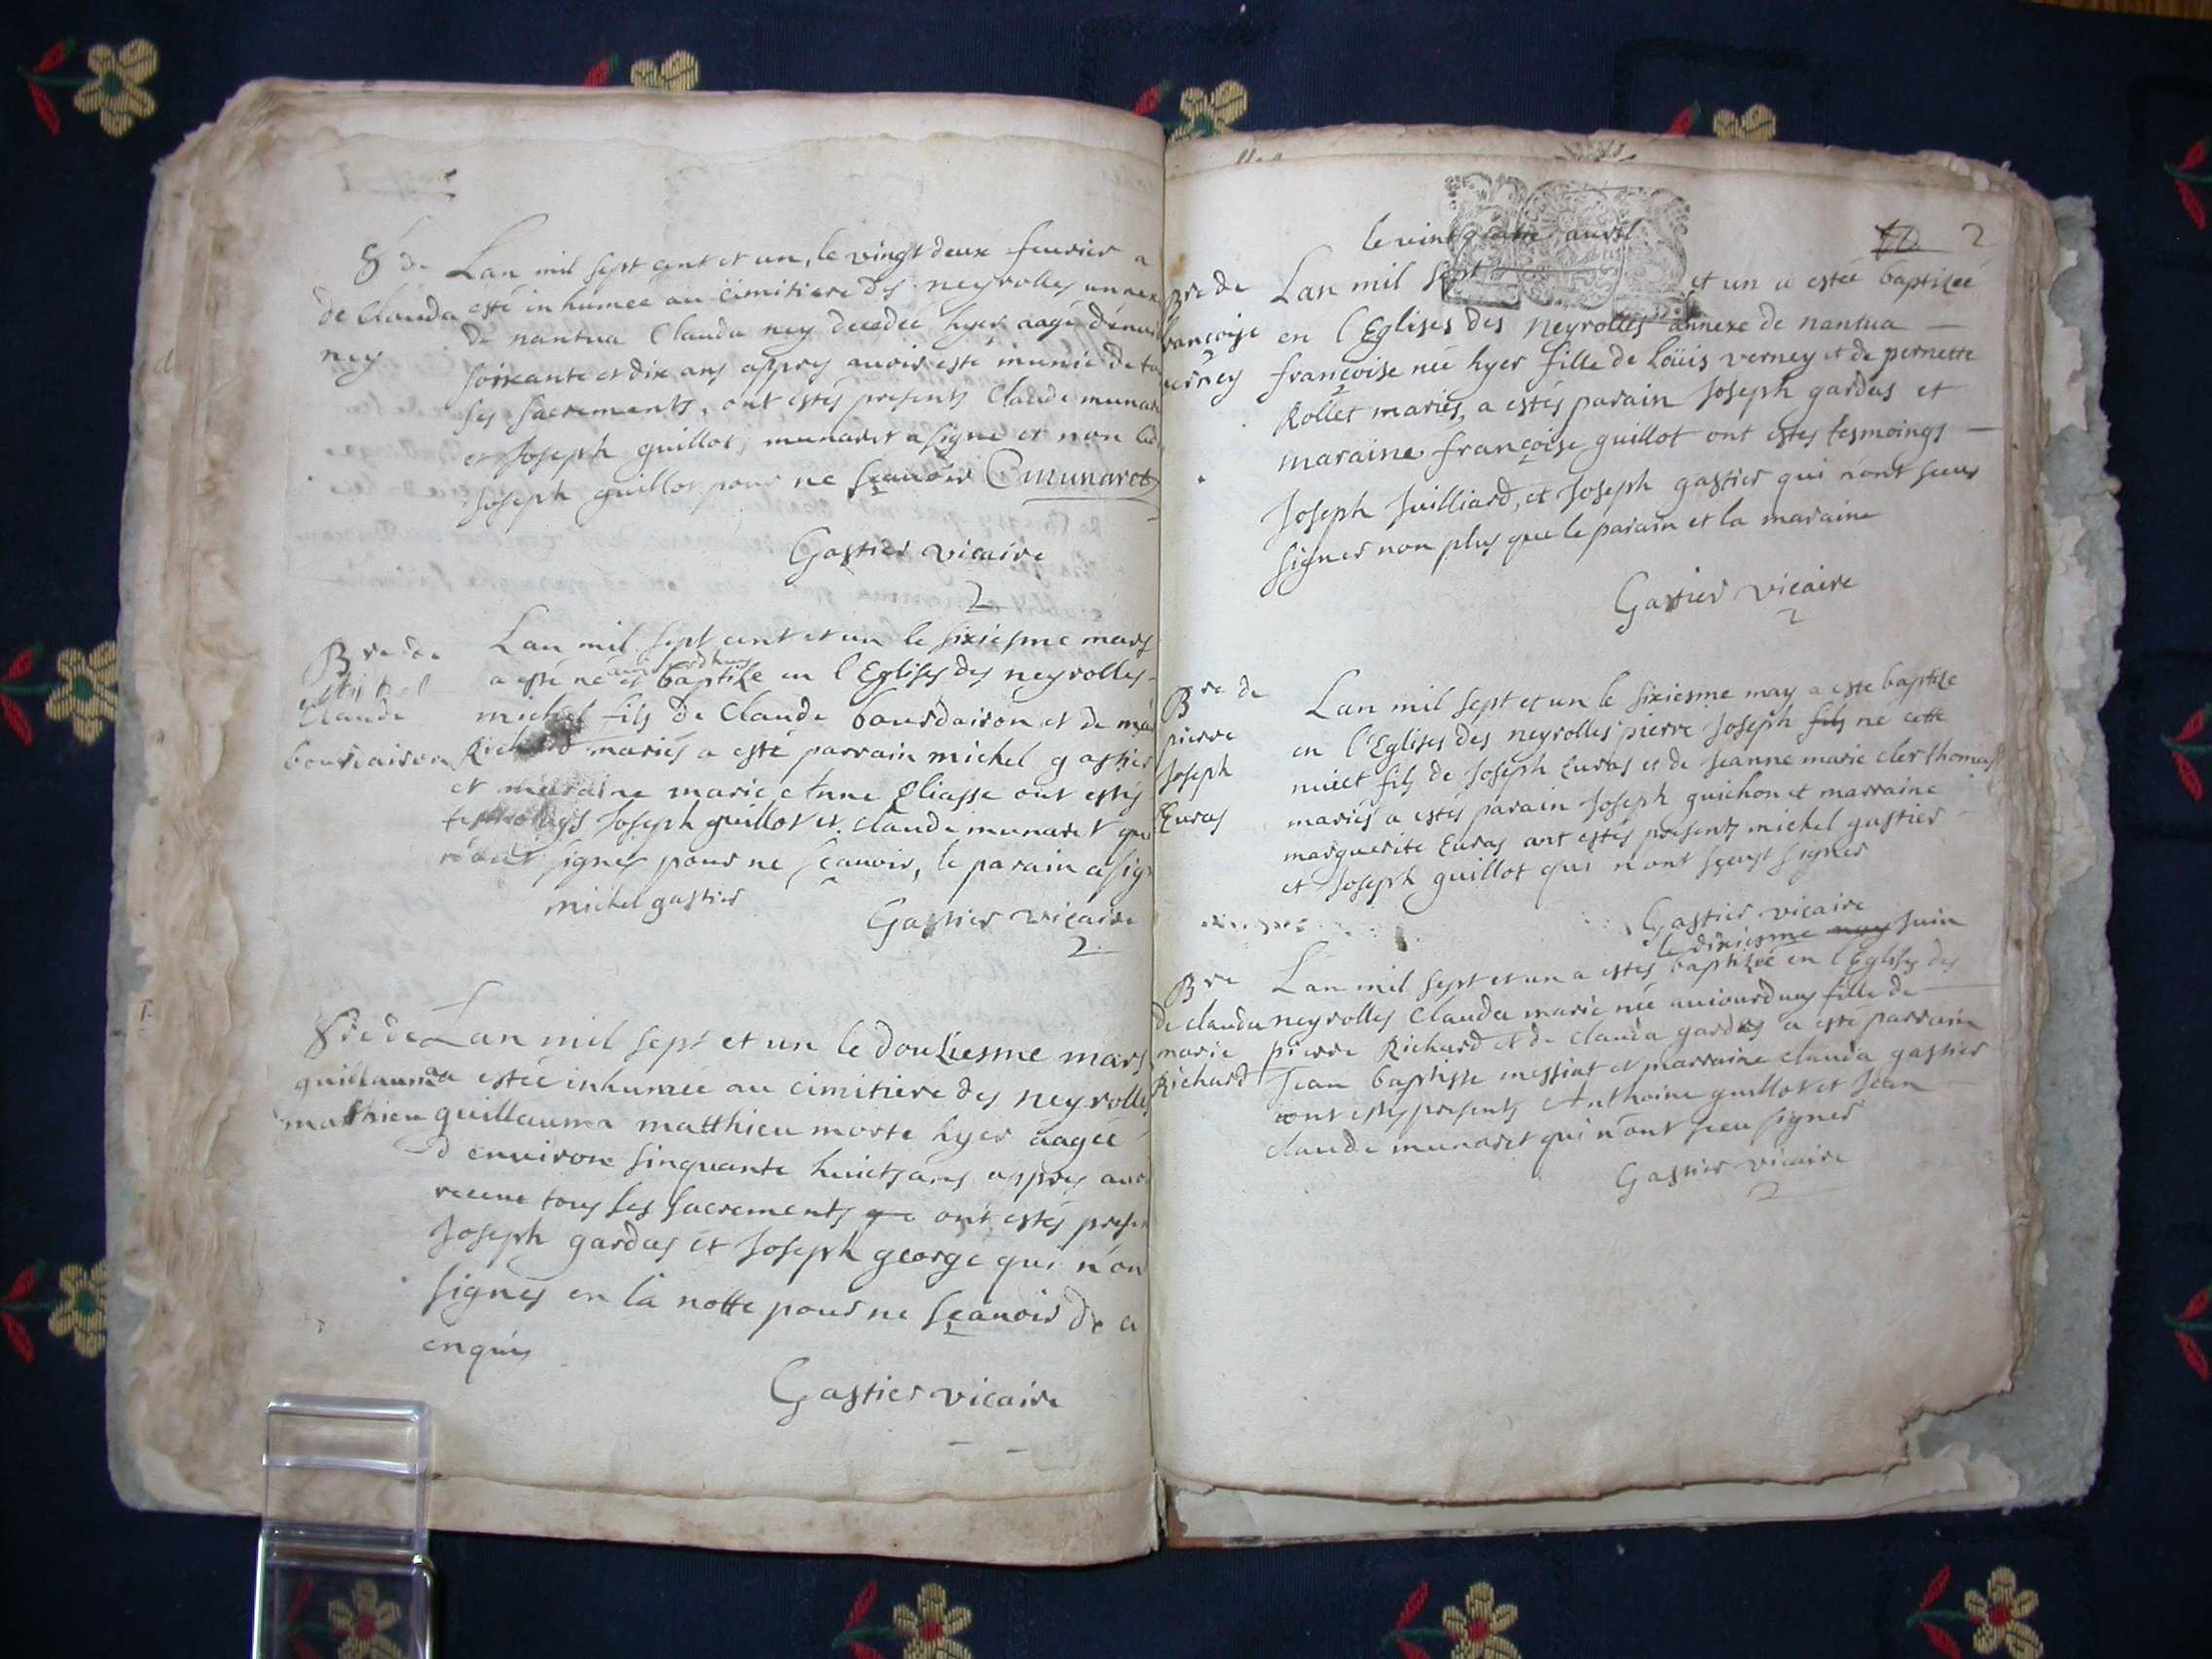 S de
de Clauda
ney
Lan mil sept cent et un, le vingt deux feurier a
esté inhumeé au cimitiere des neyrolles annex
de nantua Clauda ney decedeé hyer aagé denui
soixante et dix ans apprés auoir esté munie de to
ses sacrements, ont estés presents Claude munar
et Joseph guillot, munaret a signe et non led
Joseph guillot pour ne sçauoir C munaret
Gastier vicaire
Bre de
michel
Claude
bourdairon
Lan mil sept cent et un le sixiesme mars
auiourdhuy
a esté né et baptize en l'Eglises des neyrolles
michel fils de Claude bourdairon et de
Richard mariés a esté parrain michel gastier
et maraine marie Anne Eliasse ont estés
tesmoings Joseph guillot et claude munaret qui
n'ont signés pour ne sçauoir, le parain a sig
michel gastier
Gastier vicaire
Sre de
guillauma
matthieu
Lan mil sept et un le douziesme mars
a estée inhumée au cimitiere des neyrolles
guillauma matthieu morte hyer aagée
d environ sinquante huict ans apprés auo
receue tous ses sacrements que ont estés presen
Joseph gardas et Joseph george qui n'on
signés en la notte pour ne sçauoir de ce
enquis
Gastier vicaire
2
le vint quatre auril
Bre de
francoise
verney
Lan mil sept et un a esteé baptizeé
en l'Eglises des neyrolles annexe de nantua
françoise née hyer fille de Loüis verney et de pernette
Rollet mariés, a estés parain Joseph gardas et
maraine françoise guillot ont estes tesmoings
Joseph Juilliard, et Joseph gastier qui n'ont sceus
signer non plus que le parain et la maraine
Gastier vicaire
Bre de
pierre
Joseph
Euras
Lan mil sept et un le sixiesme may a este baptize
en l'Eglises des neyrolles pierre Joseph fils ne cette
nuict fils de Joseph Euras et de Jeanne marie cler thomas
mariés a estés parain Joseph guichon et marraine
marguerite Euras ont estés presents michel gastier
et Joseph guillot qui n'ont sçeust signer
Gastier vicaire
Bre
de clauda
marie
Richard
le dixiesme may Juin
Lan mil sept et un a estés baptizeé en l'Eglises des
neyrolles Clauda marie née auiourduy fille de
pierre Richard et de Clauda gardas a esté parrain
Jean baptiste messiat et marraine clauda gastier
ont estés presents Anthoine guillot et Jean
claude munaret qui n'ont sceu signer
Gastier vicaire